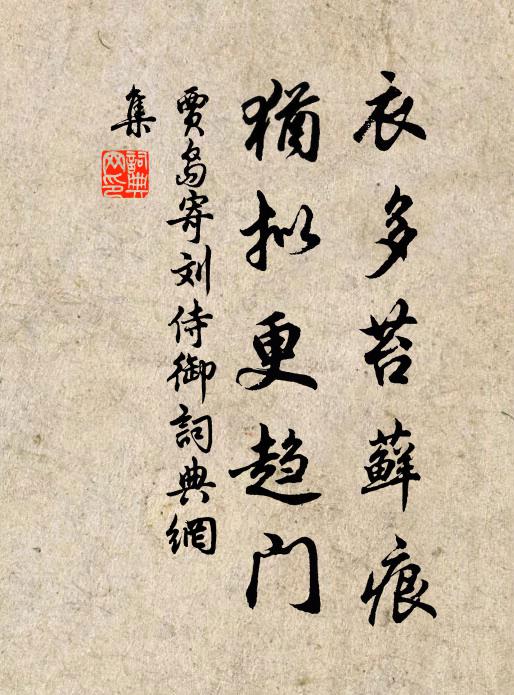 衣多苔藓痕
猶拟更趋门
賈島寄刘侍御詞典網
集
詞典
网印